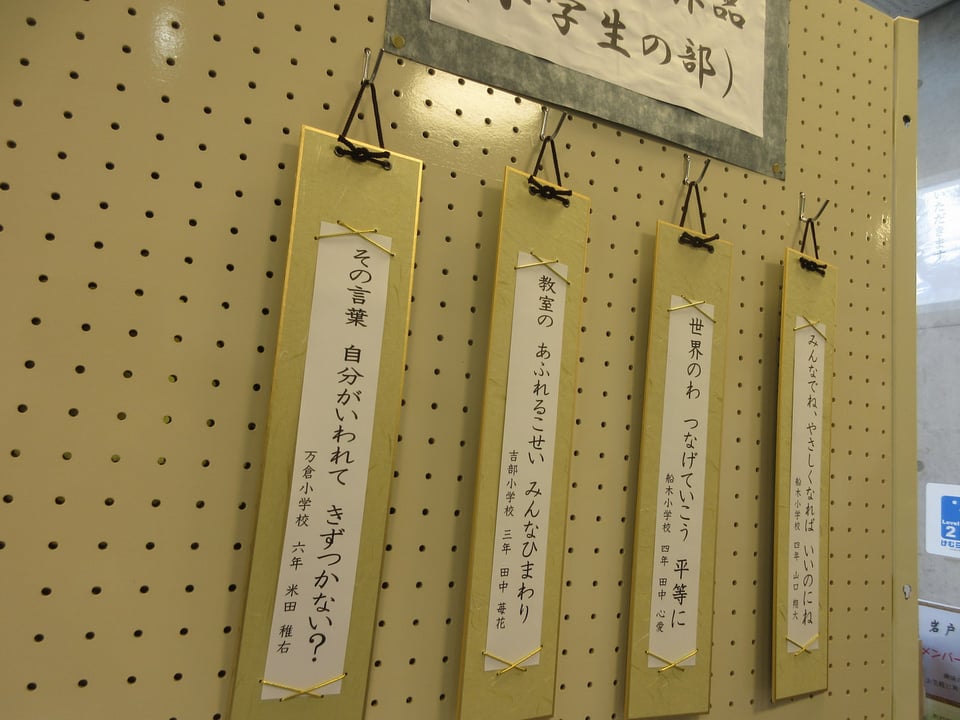 学生の部）
その言葉　自分がいわれて　きずつかない？
万倉小学校　六年　米田　稚右
教室の　あふれるこせい　みんなひまわり
吉部小学校　三年　田中　苺花
世界のわ　つなげていこう　平等に
船木小学校　四年　田中　心愛
みんなでね、やさしくなれば　いいのにね
船木小学校　四年　山口
いただきます
Level
2
岩戸
メンバー